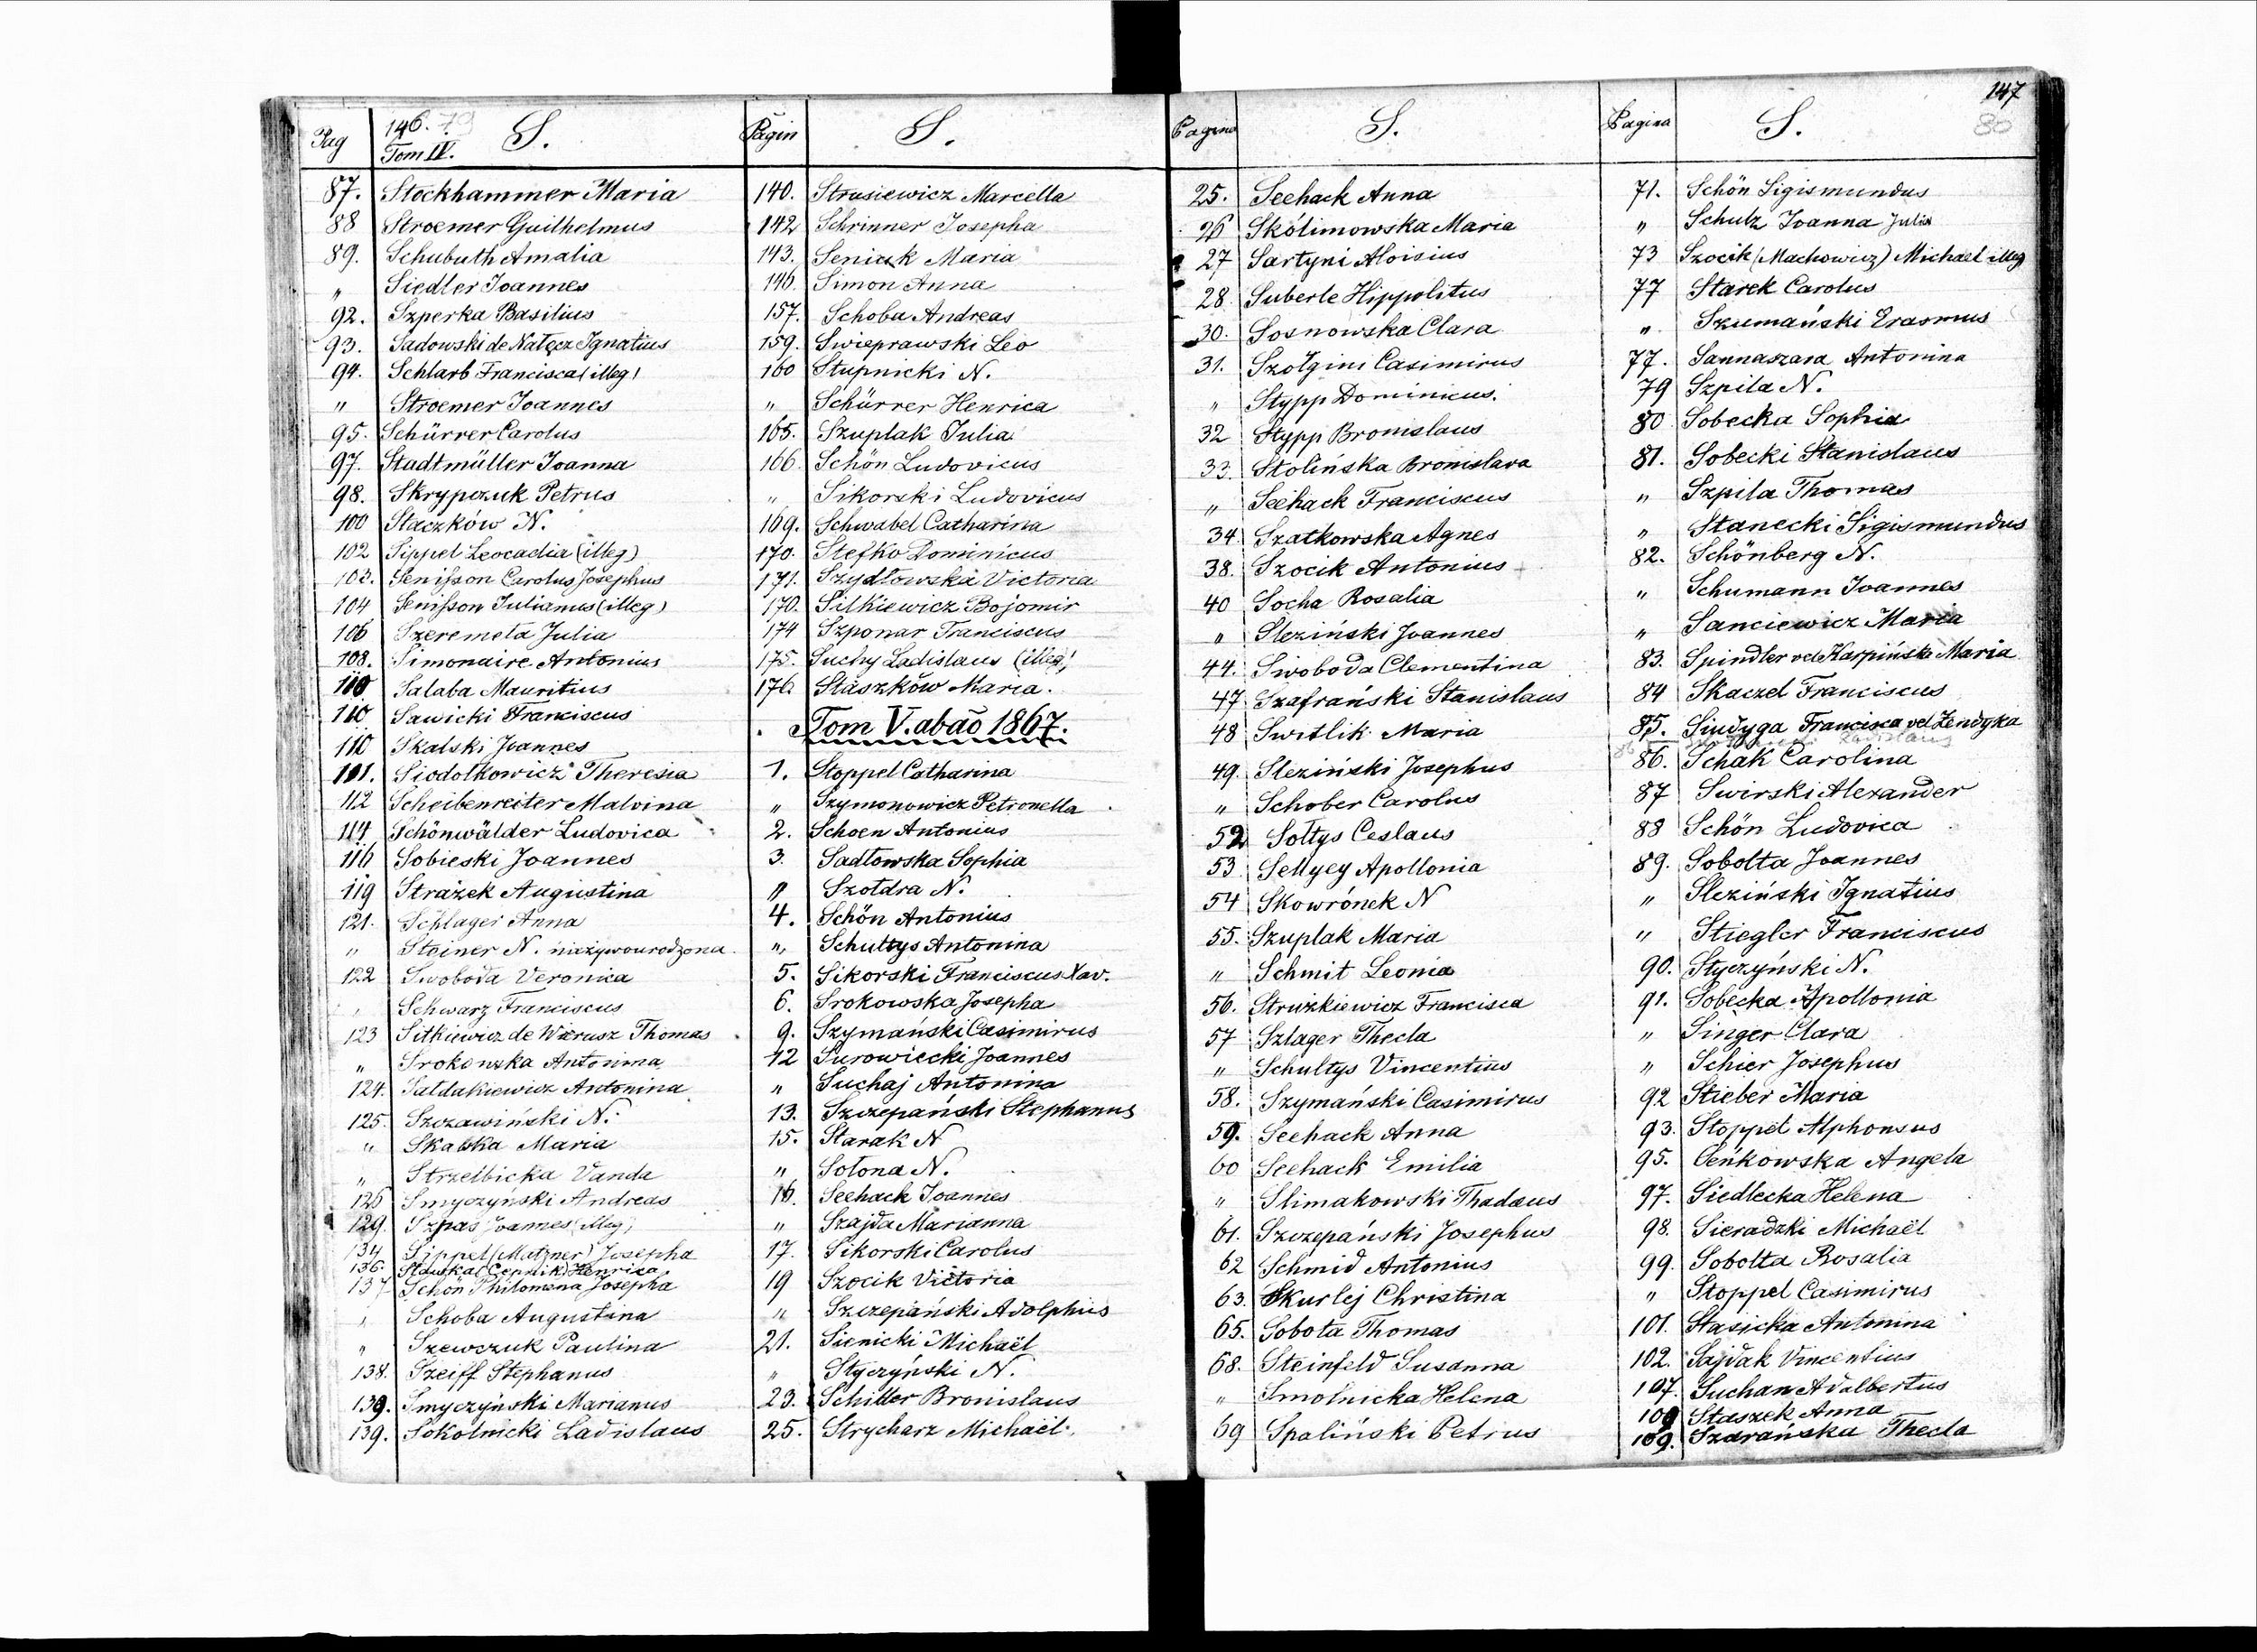 Pag 146. 79 S.
Tom IV.
87. Stockhammer Maria
88 Stroemer Guilhelmus
89. Schubuth Amalia
„ Siedler Joannes
92. Szperka Basilius
93. Sadowski de Nałęcz Ignatius
94. Schlarb Francisca (illeg)
„ Stroemer Joannes
95. Schürrer Carolus
97. Stadtmüller Joanna
98. Skrypczuk Petrus
100 Staczków N.
102 Sippel Leocadia (illeg)
103. Senisson Carolus Josephus
104 Senisson Julianus (illeg)
106 Szeremeta Julia
108. Simonaire Antonius
110 Salaba Mauritius
110 Sawicki Franciscus
110 Skalski Joannes
111. Siodołkowicz Theresia
112 Scheibenreiter Malvina
114 Schönwälder Ludovica
116 Sobieski Joannes
119 Strażek Augustina
121. Schlager Anna
„ Steiner N. nieżywourodzona
122 Swoboda Veronica
„ Schwarz Franciscus
123 Sitkiewicz de Wierusz Thomas
„ Srokowska Antonina
124. Sałdakiewicz Antonina
125. Szczawiński N.
„ Skalska Maria
„ Strzelbicka Vanda
126 Smyczyński Andreas
129. Szpas Joannes (illeg)
134 Sippel (Matzner) Josepha
136. Słauska (Cepnik) Henrica
137 Schön Philomena Josepha
„ Schoba Augustina
„ Szewczuk Paulina
138. Szeiff Stephanus
139. Smyczyński Marianus
139. Sokolnicki Ladislaus
Pagin S.
140. Strusiewicz Marcella
142 Schrinner Josepha
143. Seniuk Maria
146. Simon Anna
157. Schoba Andreas
159. Swieprawski Leo
160 Stupnicki N.
„ Schürrer Henrica
165. Szuplak Julia
166. Schön Ludovicus
„ Sikorski Ludovicus
169. Schwabel Catharina
170. Stefko Dominicus
171. Szydłowska Victoria
170. Silkiewicz Bojomir
174 Szponar Franciscus
175. Suchy Ladislaus (illeg)
176 Staszków Maria.
Tom V. ab aõ 1867.
1. Stoppel Catharina
„ Szymonowicz Petronella
2. Schoen Antonius
3. Sadłowska Sophia
„ Szołdra N.
4. Schön Antonius
„ Schultys Antonina
5. Sikorski Franciscus Xav.
6. Srokowska Josepha
9. Szymański Casimirus
12 Surowiecki Joannes
„ Suchaj Antonina
13. Szczepański Stephanus
15. Starak N
„ Sołona N.
16. Seehack Joannes
„ Szajda Marianna
17. Sikorski Carolus
19 Szocik Victoria
„ Szczepański Adolphus
21. Sienicki Michaël
„ Styczyński N.
23. Schiller Bronislaus
25. Strycharz Michaël.
Pagina S.
25. Seehack Anna
26 Skólimowska Maria
27 Sartyni Aloisius
28. Suberle Hippolitus
30. Sosnowska Clara
31. Szołgini Casimirus
„ Stypp Dominicus.
32 Stypp Bronislaus
33. Stolińska Bronislava
„ Seehack Franciscus
34 Szatkowska Agnes
38. Szocik Antonius
40 Socha Rosalia
„ Sleziński Joannes
44. Swoboda Clementina
47 Szafrański Stanislaus
48 Switlik Maria
49. Sleziński Josephus
„ Schober Carolus
52 Sołtys Ceslaus
53 Sellyey Apollonia
54 Skowrónek N
55. Szuplak Maria
„ Schmit Leonia
56. Strużkiewicz Francisca
57 Szlager Thecla
„ Schultys Vincentius
58. Szymański Casimirus
59. Seehack Anna
60 Seehack Emilia
„ Slimakowski Thadæus
61. Szczepański Josephus
62 Schmid Antonius
63. Skurlej Christina
65. Sobota Thomas
68. Steinfeld Susanna
„ Smolnicka Helena
69 Spaliński Petrus
Pagina S. 147
80
71. Schön Sigismundus
„ Schulz Joanna Julia
73 Szocik (Machowicz) Michael illeg
77 Starek Carolus
„ Szumański Erasmus
77. Sannaszara Antonina
79 Szpila N.
80 Sobecka Sophia
81. Sobecki Stanislaus
„ Szpila Thomas
„ Stanecki Sigismundus
82. Schönberg N.
„ Schumann Joannes
„ Sanciewicz Maria
83. Spindler vel Karpińska Maria
84 Skaczel Franciscus
85. Sindyga Francisca vel Żendyka
86. Schak Carolina
87 Swirski Alexander
88 Schön Ludovica
89. Sobolta Joannes
„ Sleziński Ignatius
„ Stiegler Franciscus
90. Styczyński N.
91. Sobecka Apollonia
„ Singer Clara
„ Schier Josephus
92 Stieber Maria
93. Stoppel Alphonsus
95. Cenkowska Angela
97. Siedlecka Helena
98. Sieradzki Michaël
99. Sobolta Rosalia
„ Stoppel Casimirus
101. Stasicka Antonina
102. Sajdak Vincentius
107. Suchan Adalbertus
109 Staszek Anna
109. Szarańska Thecla